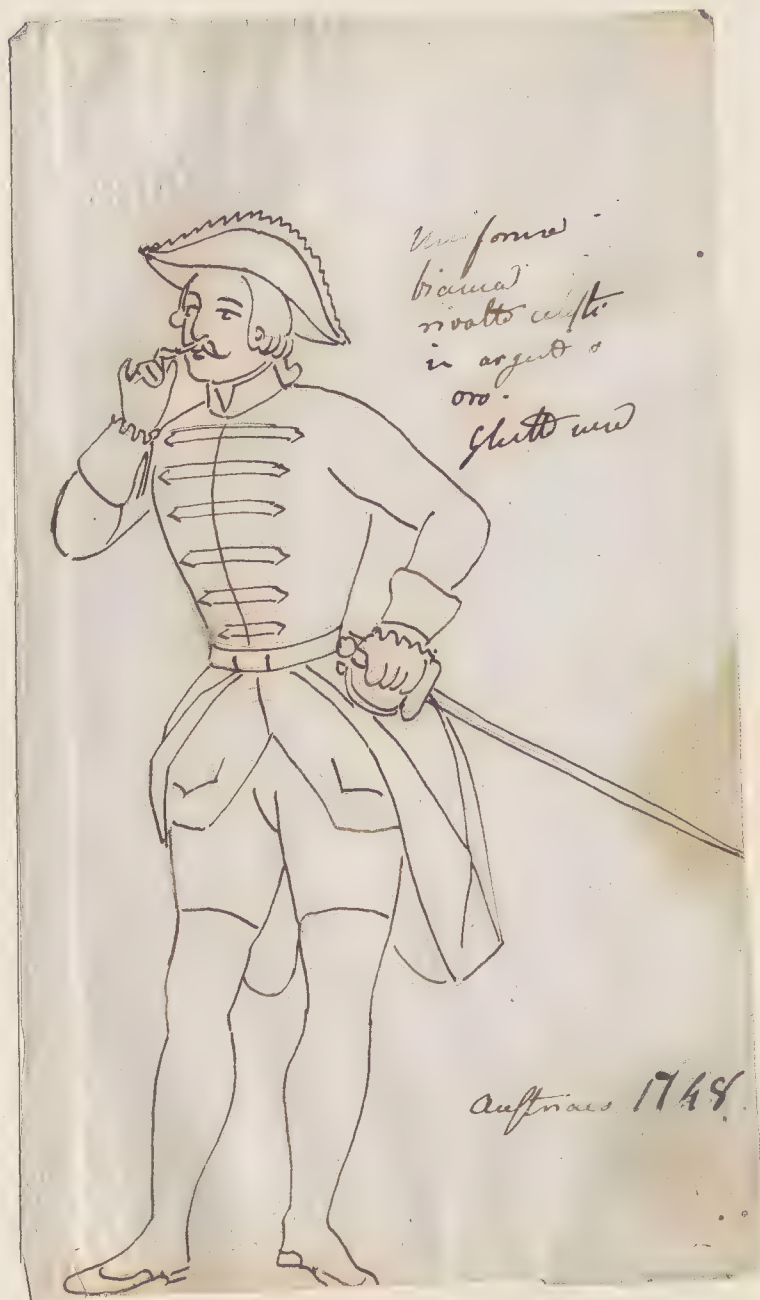 Uniforme
bianca
rivolte celesti
in argento o
oro.
Ghette nere
Austriaco 1748.